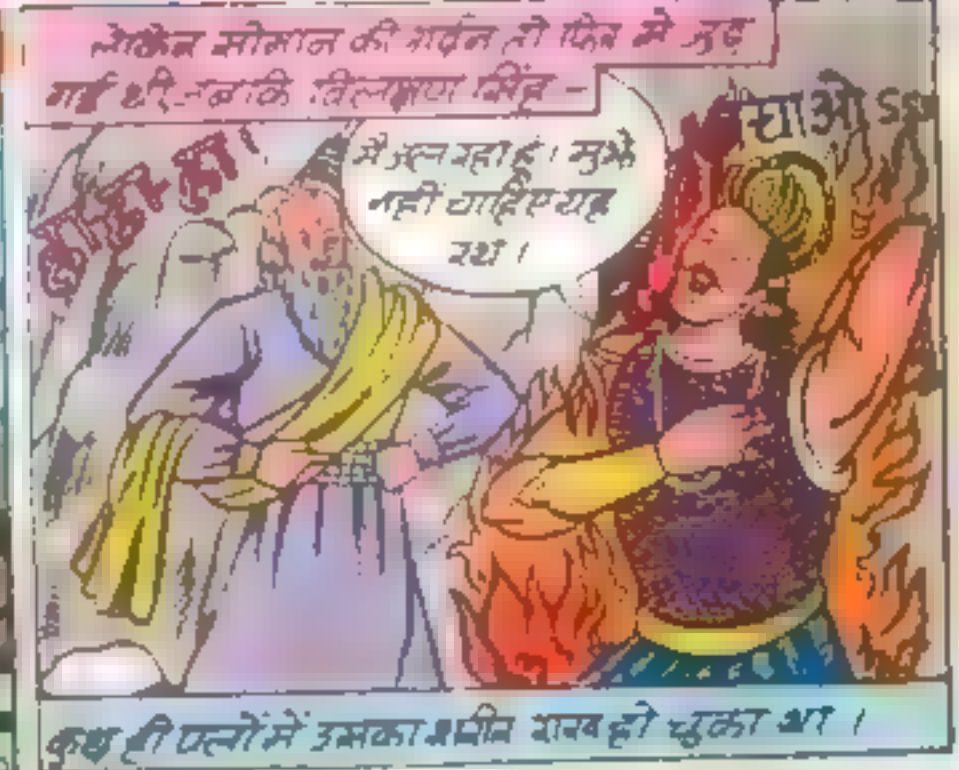 लेकिन सोमान की गर्दन तो फिर से जुड़
गई थी-जबकि विलक्षण सिंह-
हा हा हा।
मैं जल रहा हूं। मुझे
नहीं चाहिए यह
रथ।
याओ ss
कुछ ही पलों में उसका शरीर राख हो चुका था।